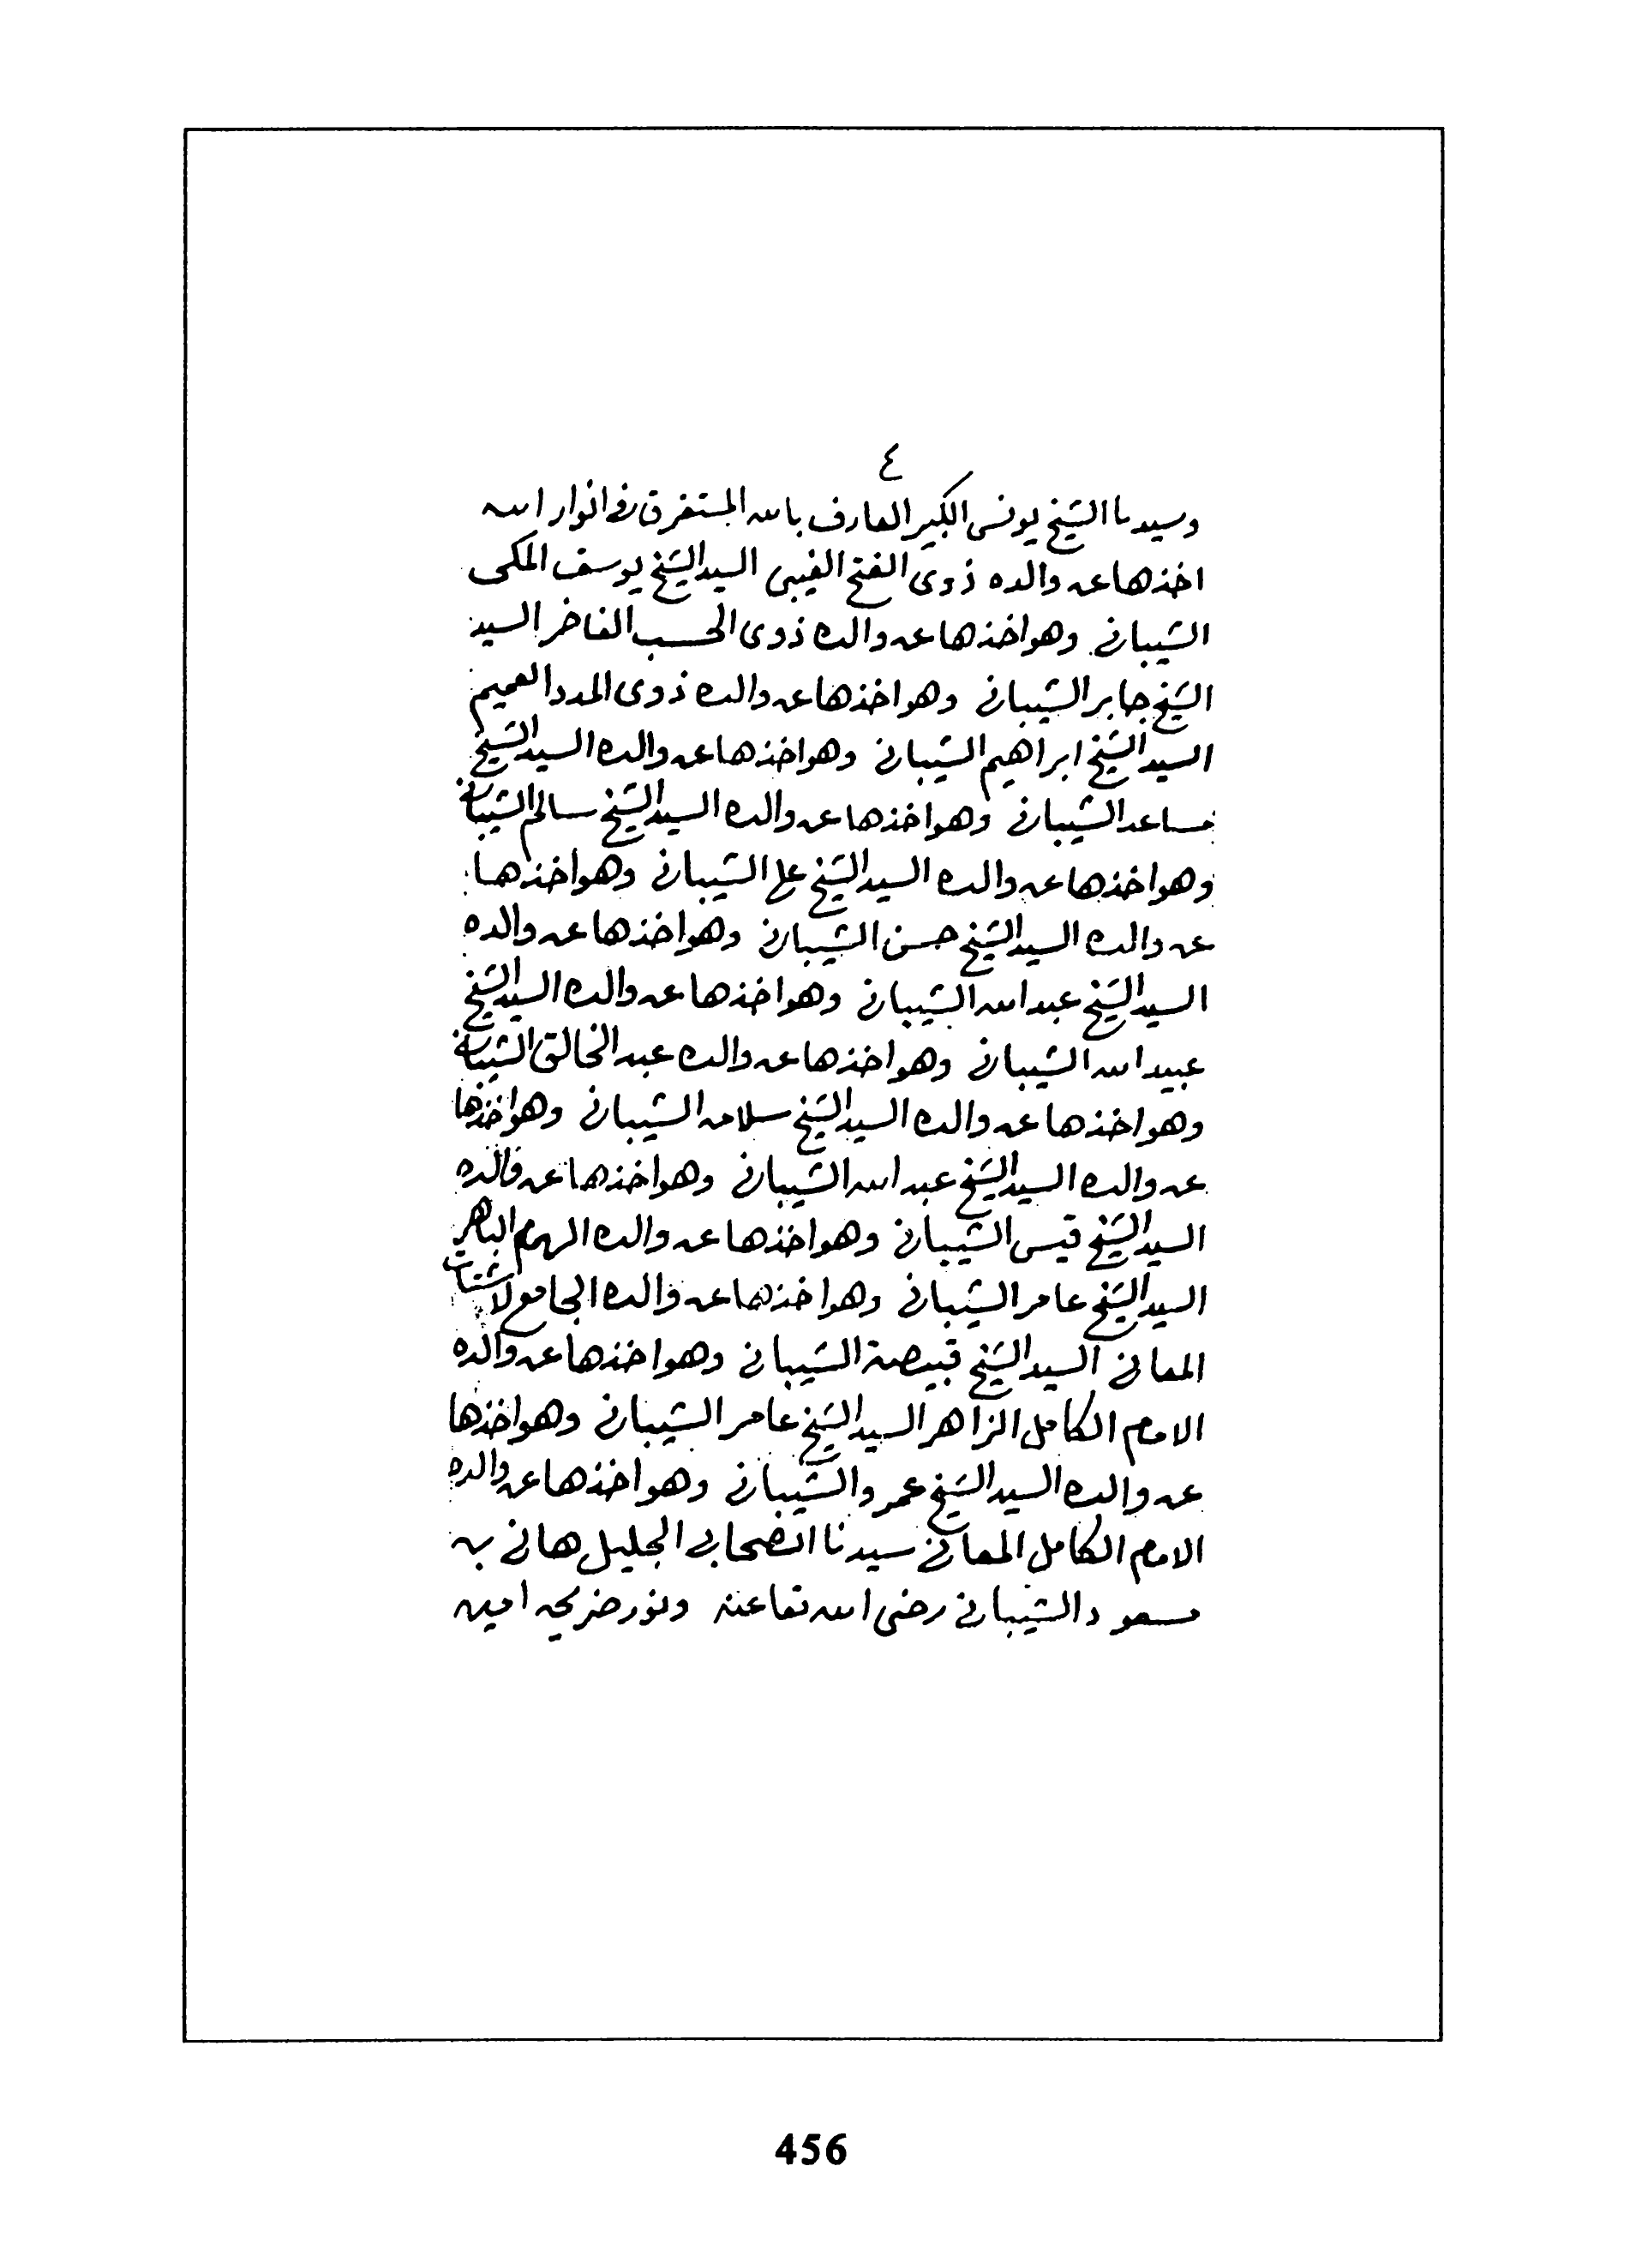 ٤
وسيدنا الشيخ يونس الكبير العارف بالله المستغرق فى انوار الله
اخذها عن والده ذوى الفتح الغيبى السيد الشيخ يوسف المكى
الشيبانى وهو اخذها عن والده ذوى الحسب الفاخر السيد
الشيخ جابر الشيبانى وهو اخذها عن والده ذوى المدد العميم
السيد الشيخ ابراهيم الشيبانى وهو اخذها عن والده السيد الشيخ
مساعد الشيبانى وهو اخذها عن والده السيد الشيخ سالم الشيبانى
وهو اخذها عن والده السيد الشيخ على الشيبانى وهو اخذها
عن والده السيد الشيخ حسن الشيبانى وهو اخذها عن والده
السيد الشيخ عبد الله الشيبانى وهو اخذها عن والده السيد الشيخ
عبيد الله الشيبانى وهو اخذها عن والده عبد الخالق الشيبانى
وهو اخذها عن والده السيد الشيخ سلامه الشيبانى وهو اخذها
عن والده السيد الشيخ عبد الله الشيبانى وهو اخذها عن والده
السيد الشيخ قيس الشيبانى وهو اخذها عن والده الهمام الباهر
السيد الشيخ عامر الشيبانى وهو اخذها عن والده الجامع لاشتات
المعانى السيد الشيخ قبيصة الشيبانى وهو اخذها عن والده
الامام الكامل الزاهر السيد الشيخ عامر الشيبانى وهو اخذها
عن والده السيد الشيخ عمرو الشيبانى وهو اخذها عن والده
الامام الكامل المعانى سيدنا الصحابى الجليل هانى بن
مسعود الشيبانى رضى الله تعا عنه ونور ضريحه امين
456